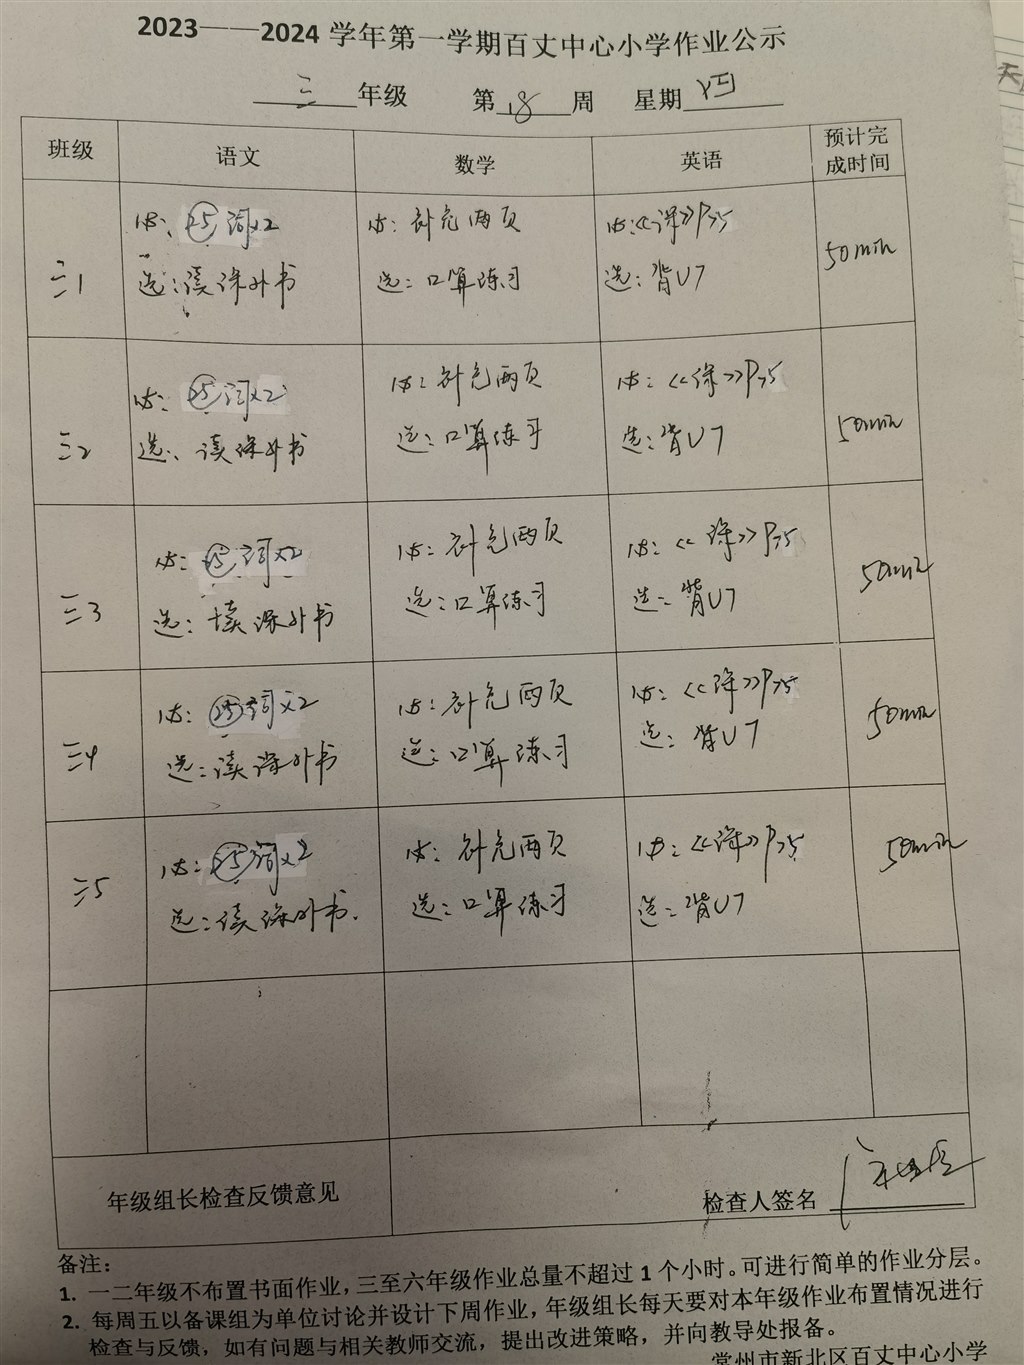 2023——2024 学年第一学期百丈中心小学作业公示
三年级 第18周 星期四
班级 语文 数学 英语 预计完成时间
三1
必: 25词x2
选: 读课外书
必: 补充两页
选: 口算练习
必:《课》P75
选: 背U7
50min
三2
必: 25词x2
选: 读课外书
必: 补充两页
选: 口算练习
必:《课》P75
选: 背U7
50min
三3
必: 25词x2
选: 读课外书
必: 补充两页
选: 口算练习
必:《课》P75
选: 背U7
50min
三4
必: 25词x2
选: 读课外书
必: 补充两页
选: 口算练习
必:《课》P75
选: 背U7
50min
三5
必: 25词x2
选: 读课外书.
必: 补充两页
选: 口算练习
必:《课》P75
选: 背U7
50min
年级组长检查反馈意见
检查人签名
备注:
1. 一二年级不布置书面作业，三至六年级作业总量不超过 1 个小时。可进行简单的作业分层。
2. 每周五以备课组为单位讨论并设计下周作业，年级组长每天要对本年级作业布置情况进行
检查与反馈，如有问题与相关教师交流，提出改进策略，并向教导处报备。
常州市新北区百丈中心小学